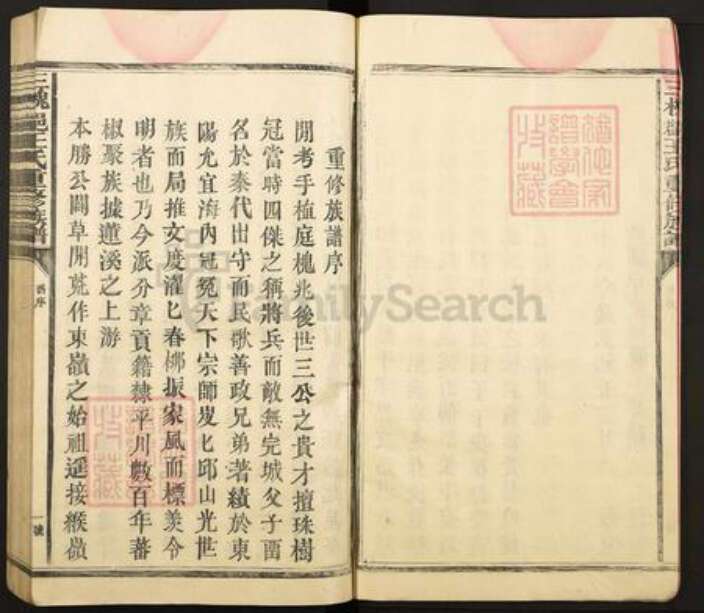 三槐邑王氏重修族譜
重修族譜序
閒考手植庭槐兆後世三公之貴才擅珠樹
冠當時四傑之稱將兵而敵無完城父子留
名於秦代出守而民歌善政兄弟著績於東
陽允宜海內冠冕天下宗師岌匕邱山光世
族而局推文度濯匕春柳振家風而標羨令
明者也乃今派分章貢籍隸平川數百年蕃
椒聚族據蓮溪之上游
本勝公闢草開荒作東嶺之始祖遥接緱嶺
舊序
一號
FamilySearch